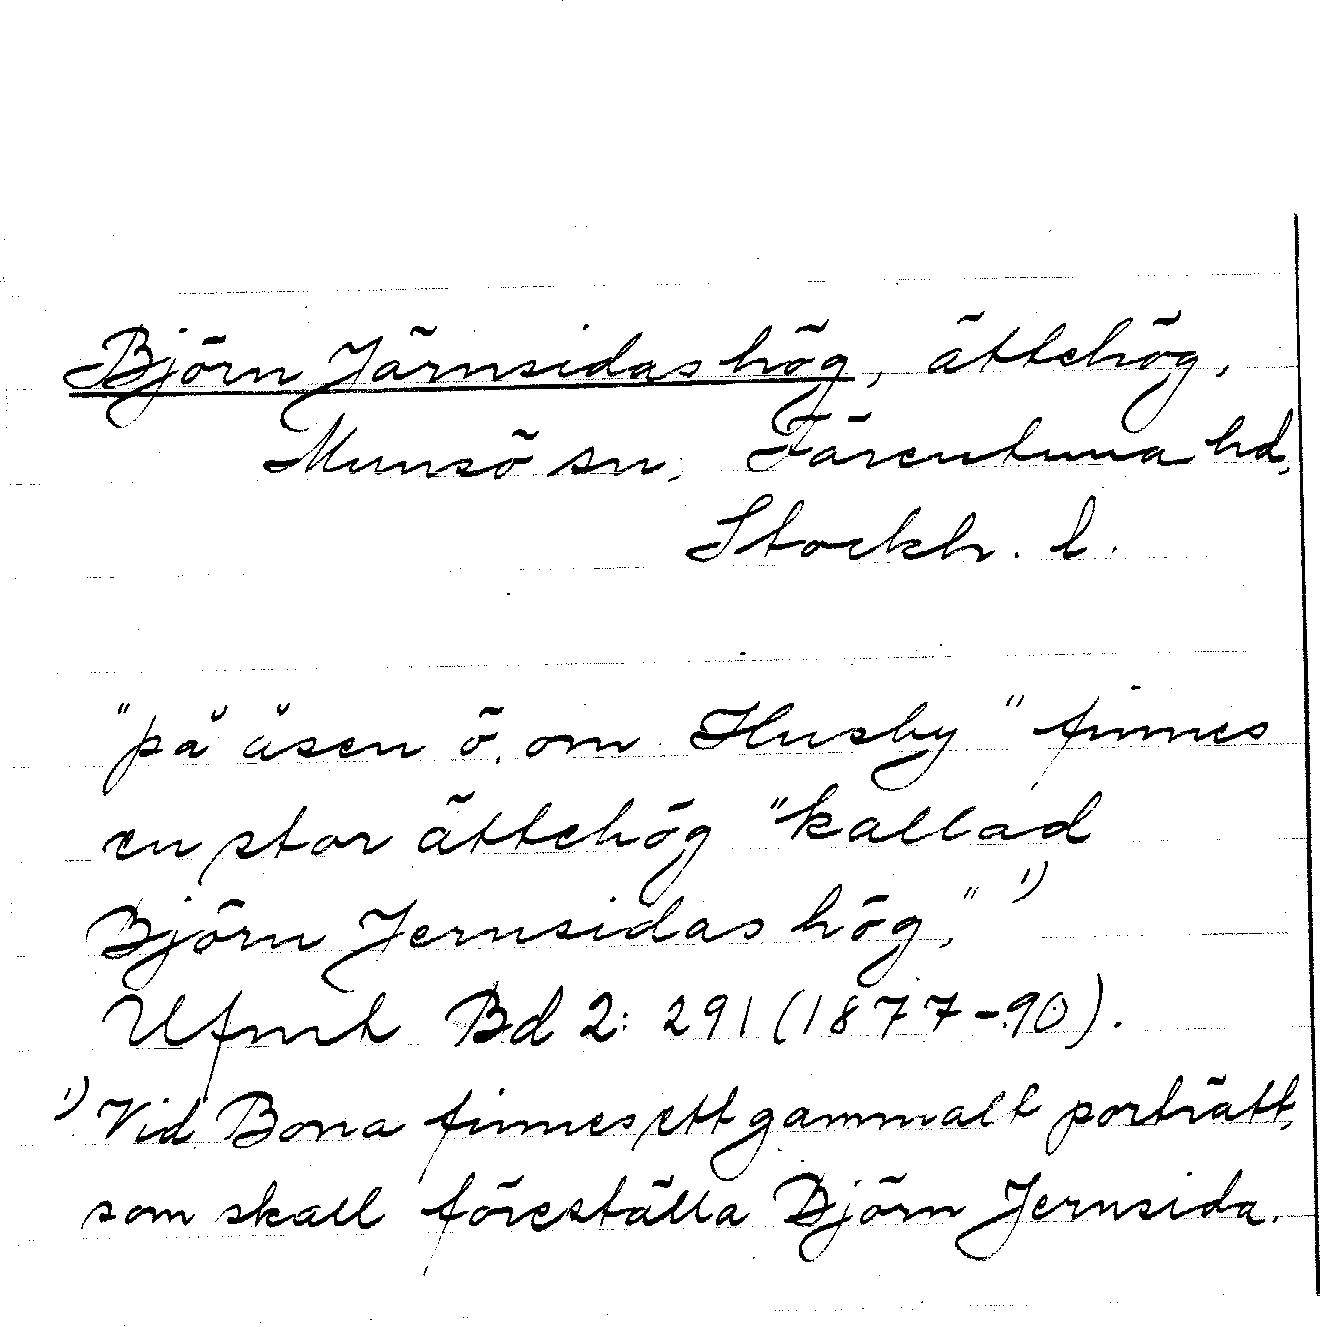 Björn Järnsidas hög, ättehög,
Munsö sn, Färentuna hd,
Stockh. l.
"på åsen ö. om Husby" finnes
en stor ättehög "kallad
Björn Jernsidas hög." 1)
Ufmt Bd 2: 291 (1877-90).
1) Vid Bona finnes ett gammalt porträtt,
som skall föreställa Björn Jernsida.